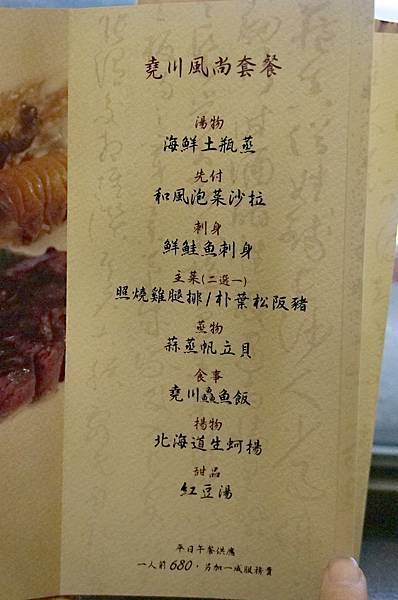 堯川風尚套餐
湯物
海鮮土瓶蒸
先付
和風泡菜沙拉
刺身
鮮鮭魚刺身
主菜(二選一)
照燒雞腿排/朴葉松阪豬
蒸物
蒜蒸帆立貝
食事
堯川鱻魚飯
揚物
北海道生蚵揚
甜品
紅豆湯
平日午餐供應
一人前680,另加一成服務費